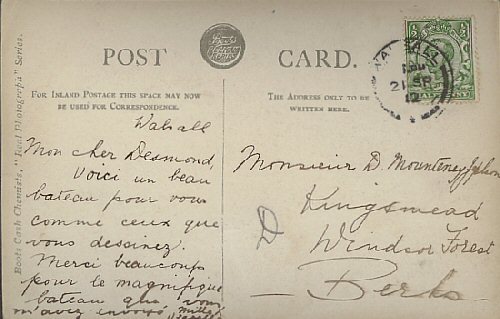 POST CARD.
FOR INLAND POSTAGE THIS SPACE MAY NOW
BE USED FOR CORRESPONDENCE.
THE ADDRESS ONLY TO BE
WRITTEN HERE.
Boots Cash Chemists, "Real Photograph" Series.
WALSALL
21 SP
12
Walsall
Mon cher Desmond,
Voici un beau
bateau pour vous
comme ceux que
vous dessinez.
Merci beaucoup
pour le magnifique
bateau que vous
m'avez envoyé
Monsieur D. Mounteney
Kingsmead
Windsor Forest
Berks